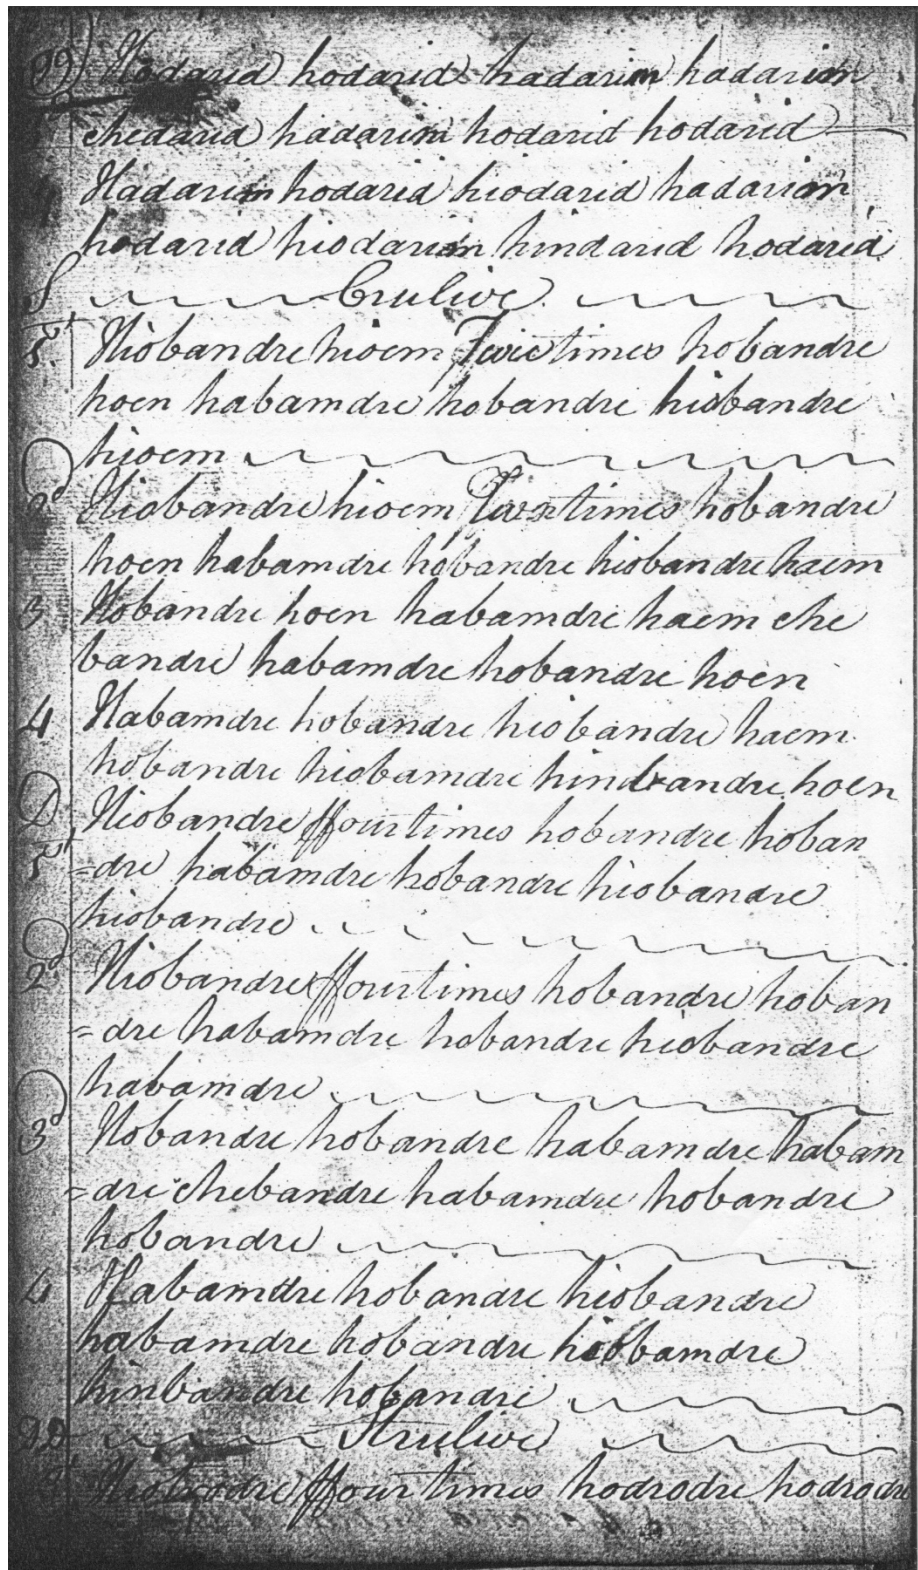 99) Hodarid hodarid hadarim hadarim
chedarid hadarim hodarid hodarid
4 Hadarim hodarid hiodarid hadarim
hodarid hiodarim hindarid hodarid
S Crulive.
1st Hiobandre hioem Twictimes hobandre
hoen habamdre hobandre hiobandre
hioem
2d Hiobandre hioem times hobandre
hoen habamdre hobandre hiobandre haem
3 Hobandre hoen habamdre haem che
bandre habamdre hobandre hoen
4 Habamdre hobandre hiobandre haem
hobandre hiobamdre hinbandre hoen
D Hiobandre ffourtimes hobandre hoban
1st =dre habamdre hobandre hiobandre
hiobandre
2d Hiobandre ffourtimes hobandre hoban
=dre habamdre hobandre hiobandre
habamdre
3d Hobandre hobandre habamdre habam
=dre chebandre habamdre hobandre
hobandre
4 Habamdre hobandre hiobandre
habamdre hobandre hiobamdre
hinbandre hobandre
ffourtimes hodrodre hodrodre